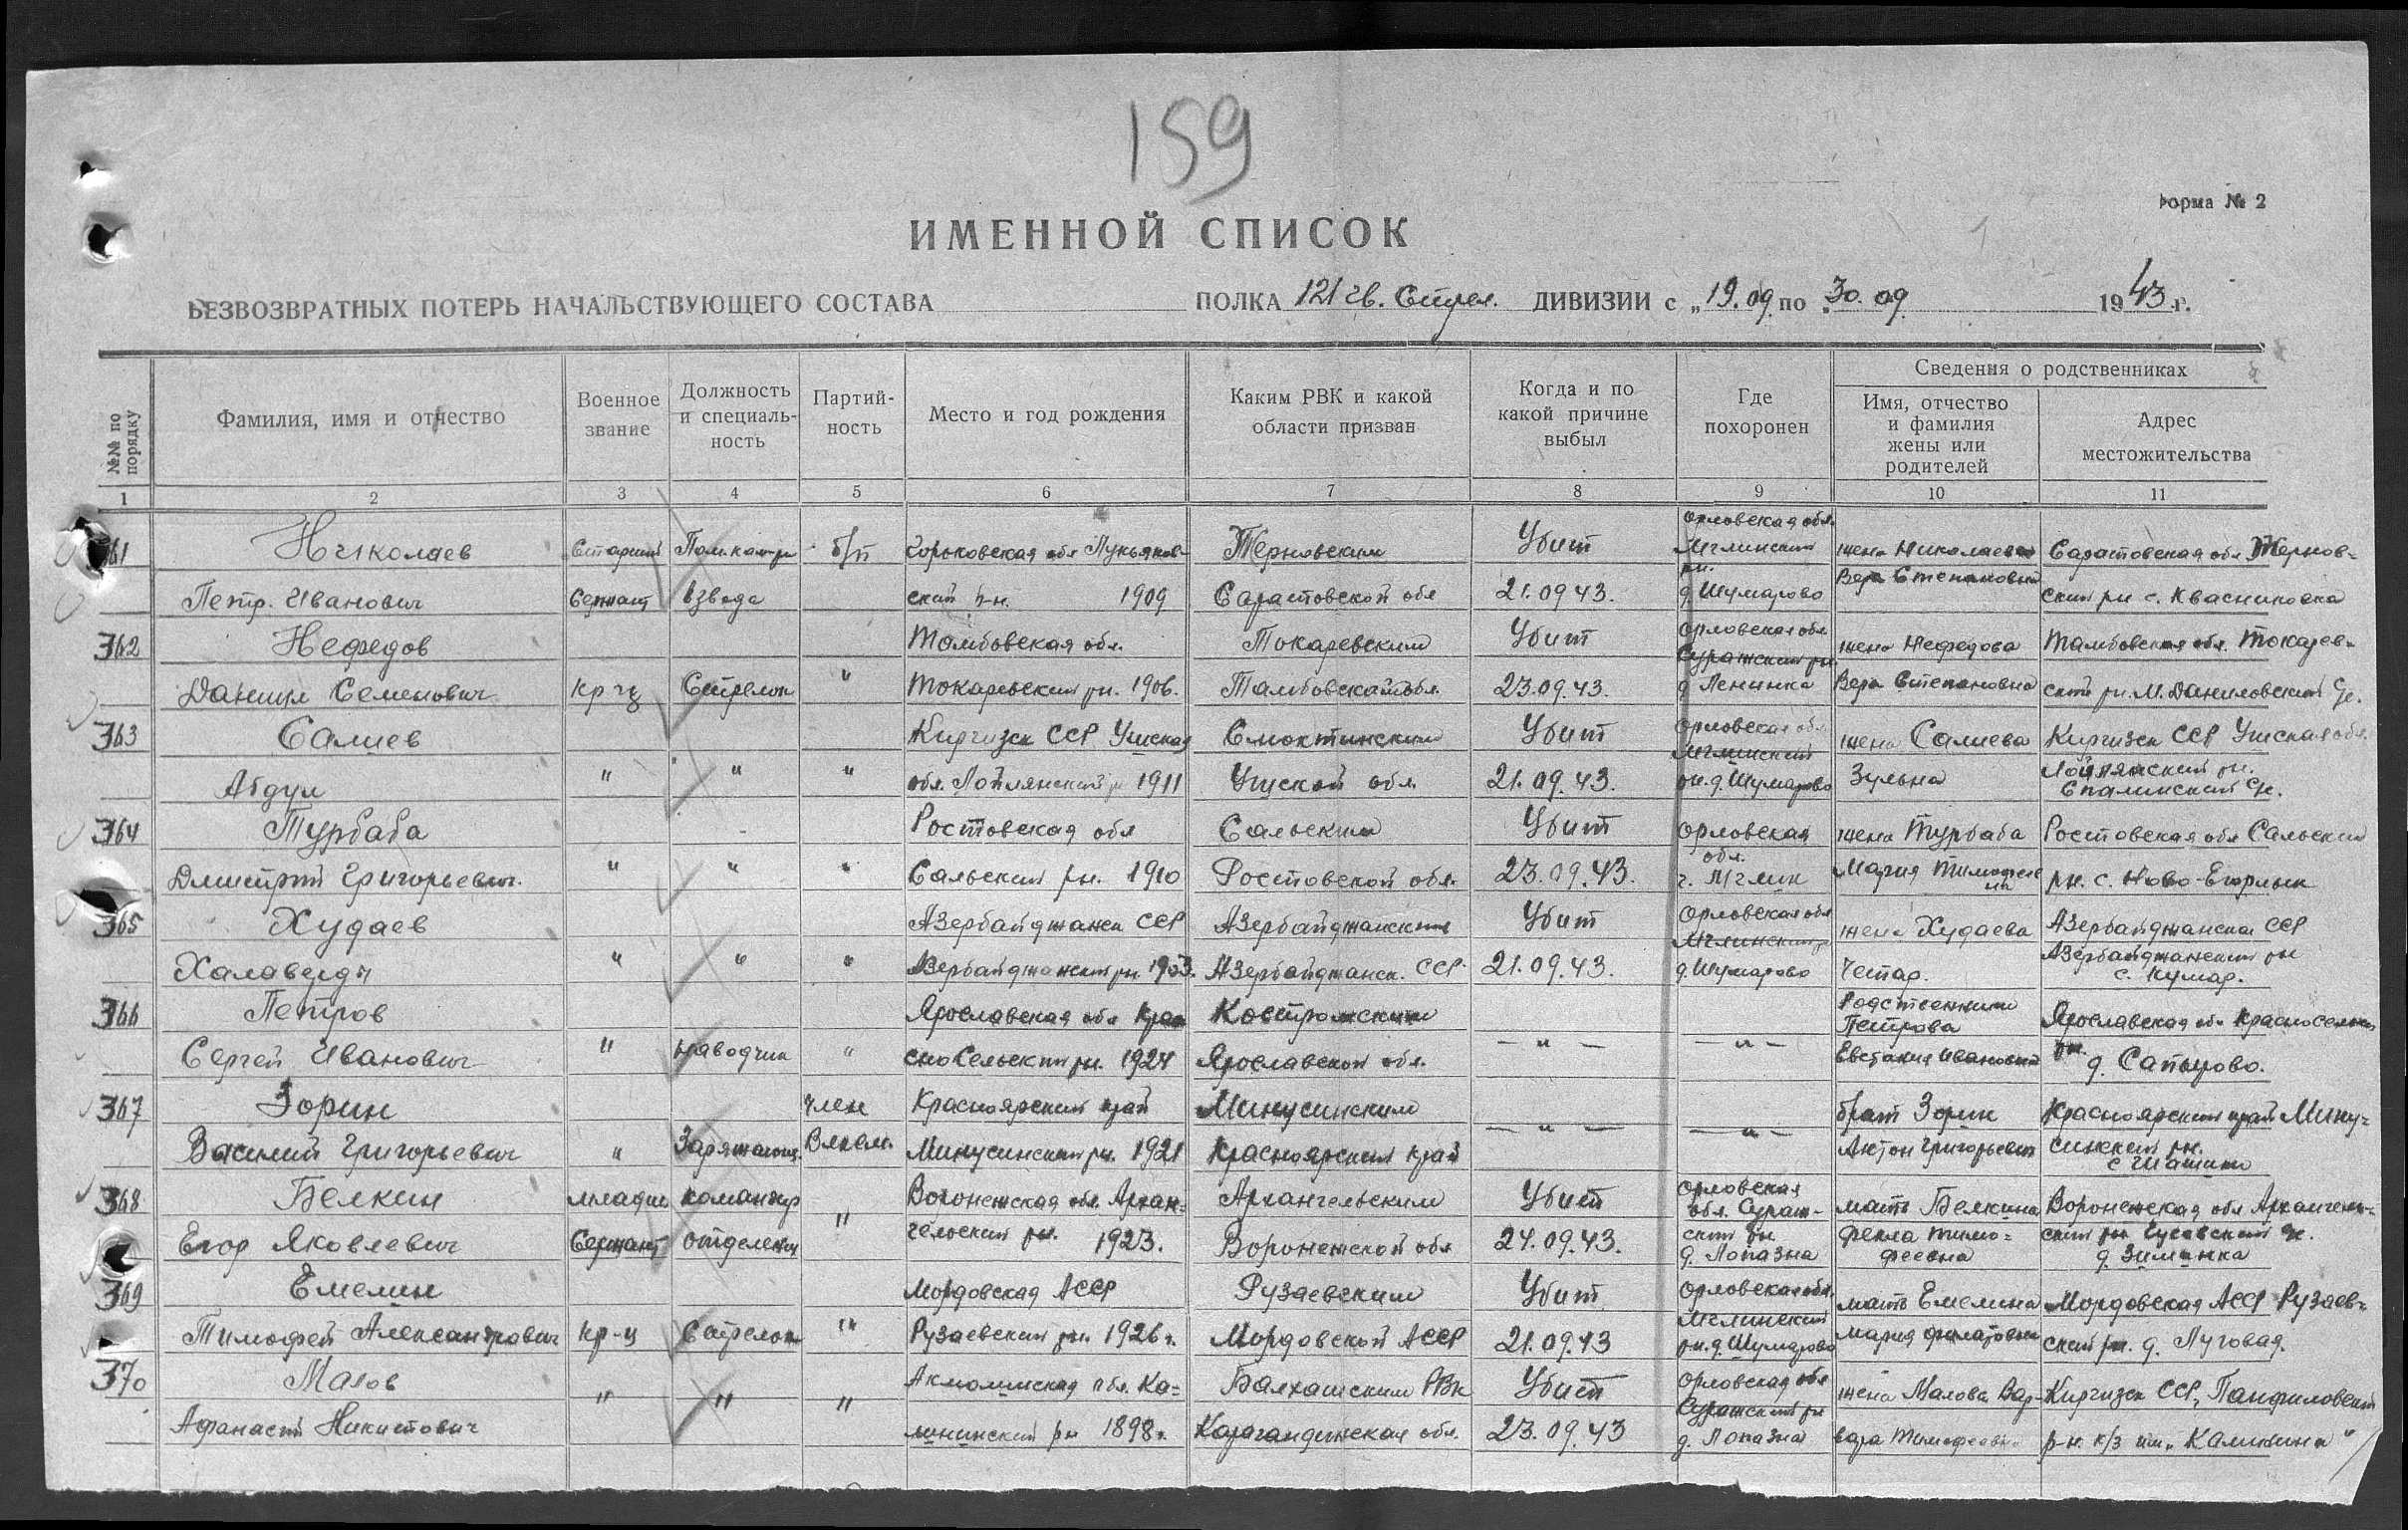 159
Форма № 2
ИМЕННОЙ СПИСОК
БЕЗВОЗВРАТНЫХ ПОТЕРЬ НАЧАЛЬСТВУЮЩЕГО СОСТАВА ПОЛКА 121 гв. Стрел. ДИВИЗИИ с „19.09 по 30.09 1943 г.
№№ по порядку
Фамилия, имя и отчество
Военное звание
Должность и специаль-ность
Партий-ность
Место и год рождения
Каким РВК и какой области призван
Когда и по какой причине выбыл
Где похоронен
Сведения о родственниках
Имя, отчество и фамилия жены или родителей
Адрес местожительства
1 2 3 4 5 6 7 8 9 10 11
361 Николаев Старший Пом.ком-ра б/п Горьковская обл Лукьянов- Терновским Убит Орловская обл. Мглинский рн. жена Николаева Саратовская обл. Тернов-
Петр. Иванович Сержант взвода ский р-н. 1909 Саратовской обл 21.09 43. д. Шумарово Вера Степановна ский рн с. Квасниковка
362 Нефедов Тамбовская обл. Токаревским Убит Орловская обл Суражский рн. жена Нефедова Тамбовская обл. Токарев-
Даниил Семенович кр-ц Стрелок " Токаревский рн. 1906. Тамбовской обл. 23.09.43. д Ленинка Вера Степановна ский рн. М. Даниловский С/с.
363 Салиев Киргизск ССР Ушская Убит Орловская обл Мглинский жена Салиева Киргизск ССР Ушская обл.
Абдул " " " обл. 1911 Ушской обл. 21.09.43. рн. д. Шумарово Зульна рн. С/с.
364 Турбаба Ростовская обл Сальским Убит Орловская жена Турбаба Ростовская обл Сальский
Дмитрий Григорьевич. " " " Сальский рн. 1910 Ростовской обл. 23.09.43. обл. г. Мглин Мария рн. с. Ново-Егорлык
365 Худаев Азербайджанск ССР Азербайджанским Убит Орловская обл Мглинский р жена Худаева Азербайджанска ССР
Халаверди " " " Азербайджанский рн. 1903. Азербайджанск. ССР 21.09.43. д. Шумарово Честар. Азербайджанский рн с. Кумар.
366 Петров Ярославская обл Крас Костромским Родственники Петрова Ярославская обл Красносельск
Сергей Иванович " наводчик " носельский рн. 1924 Ярославской обл. — " — — " — Ивановна рн. д. Сапырово.
367 Зорин член Красноярский край Минусинским брат Зорин Красноярский край Мину-
Василий Григорьевич " Заряжающ. Влксм. Минусинский рн. 1921 Красноярский край — " — — " — Антон Григорьевич синский рн. с Шашино
368 Белкин младш командир Воронежская обл. Архан- Архангельским Убит Орловская обл. Сураж- мать Белкина Воронежская обл Архангель-
Егор Яковлевич Сержант отделения " гельский рн. 1923. Воронежской обл 24.09.43. ский рн д. Лопазна Фекла Тимо- феевна ский рн Гусевский с/с. д. Зимянка
369 Емелин Мордовская АССР Рузаевским Убит Орловская обл. Мглинский мать Емелина Мордовская АССР Рузаев-
Тимофей Александрович кр-ц Стрелок " Рузаевский рн. 1926 г. Мордовской АССР 21.09.43 рн. д. Шумарово Мария Филатовна ский рн. д. Луговая.
370 Малов Акмолинская обл. Ка- Балхашским РВк Убит Орловская обл Суражский рн жена Малова Вар- Киргизск ССР, Панфиловский
Афанасий Никитович " " " лининский рн 1898 г. Карагандинская обл. 23.09.43 д. Лопазна вара Тимофеевн. р-н. к/з им. „Калинина"